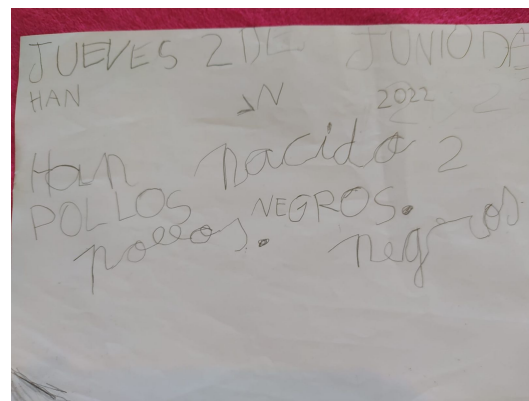 JUEVES 2 DE JUNIO DE
HAN 2022
Han nacido 2
POLLOS NEGROS.
pollos. negros